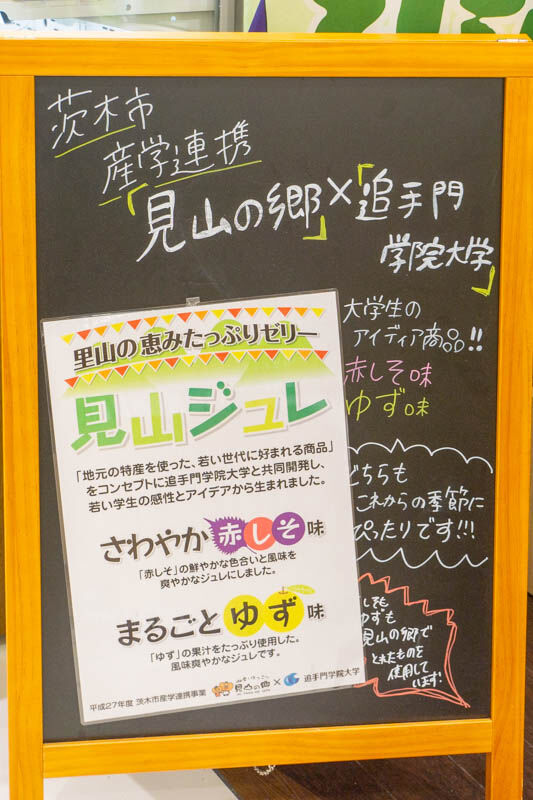 茨木市
産学連携
「見山の郷」×「追手門
学院大学」
大学生の
アイディア商品!!
赤しそ味
ゆず味
どちらも
これからの季節に
ぴったりです!!!
しそも
ゆずも
見山の郷で
とれたものを
使用して
います!
里山の恵みたっぷりゼリー
見山ジュレ
「地元の特産を使った、若い世代に好まれる商品」
をコンセプトに追手門学院大学と共同開発し、
若い学生の感性とアイデアから生まれました。
さわやか赤しそ味
「赤しそ」の鮮やかな色合いと風味を
爽やかなジュレにしました。
まるごとゆず味
「ゆず」の果汁をたっぷり使用した。
風味爽やかなジュレです。
平成27年度 茨木市産学連携事業
見山の郷 × 追手門学院大学